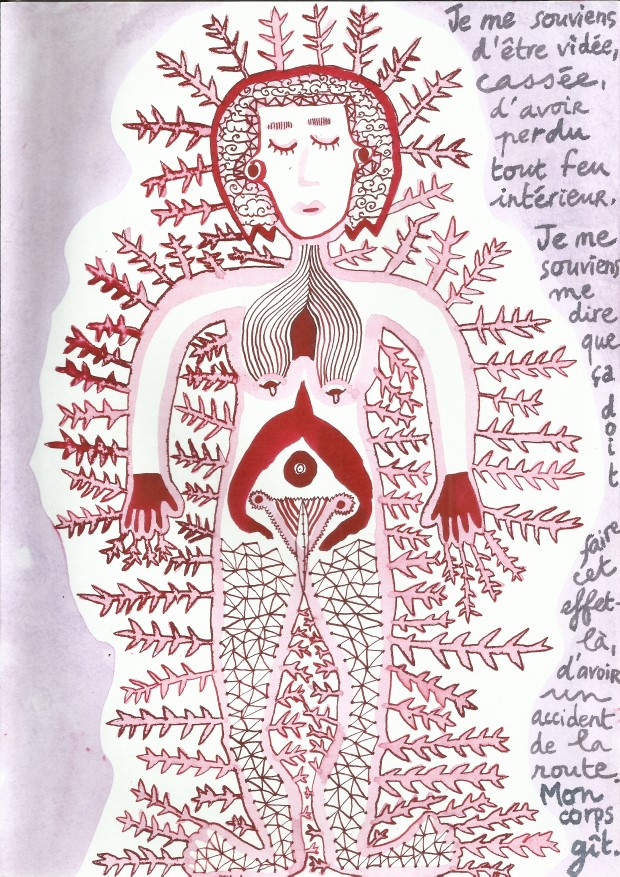 Je me souviens
d'être vidée,
cassée,
d'avoir
perdu
tout feu
intérieur.
Je me
souviens
me
dire
que
ça
doit
faire
cet
effet-
là,
d'avoir
un
accident
de la
route.
Mon
corps
gît.